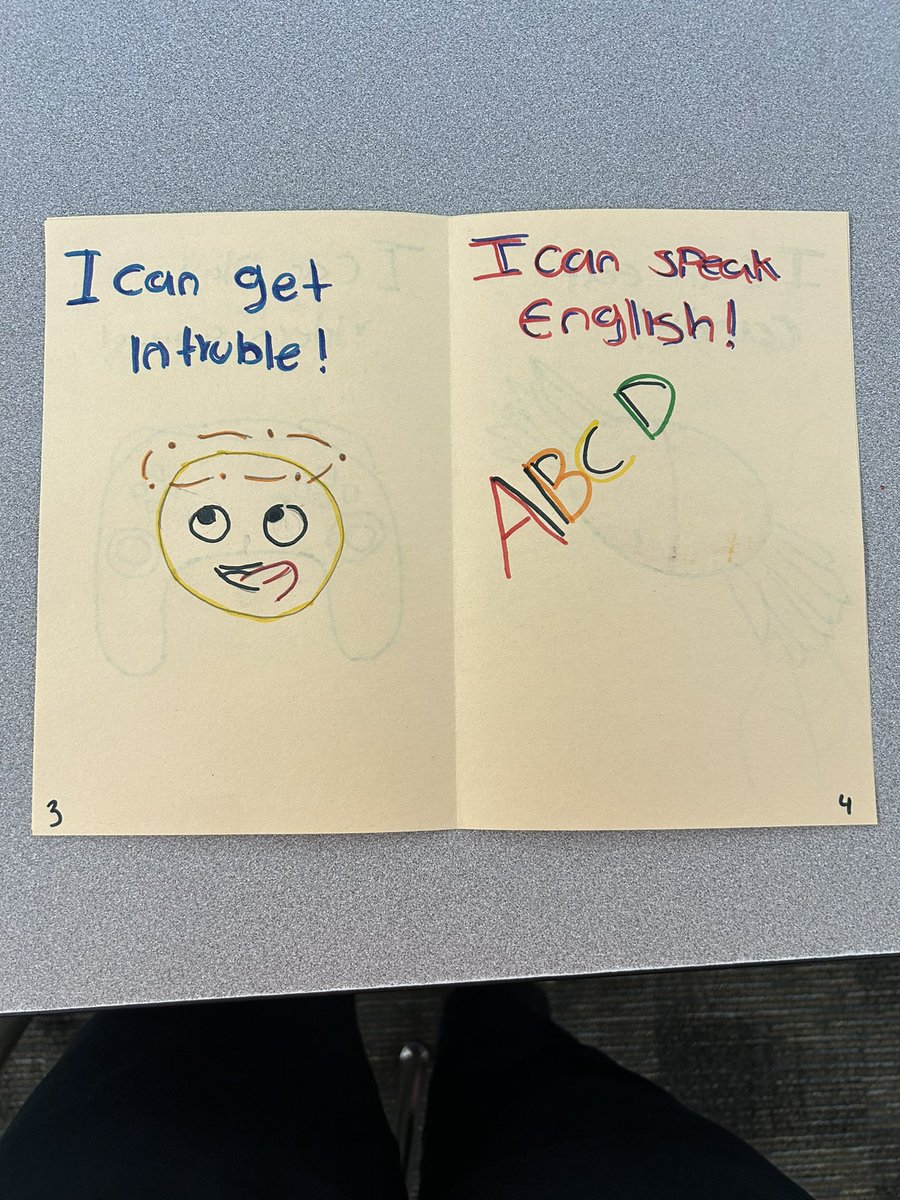 I can get
intruble!
3
I can speak
English!
ABCD
4